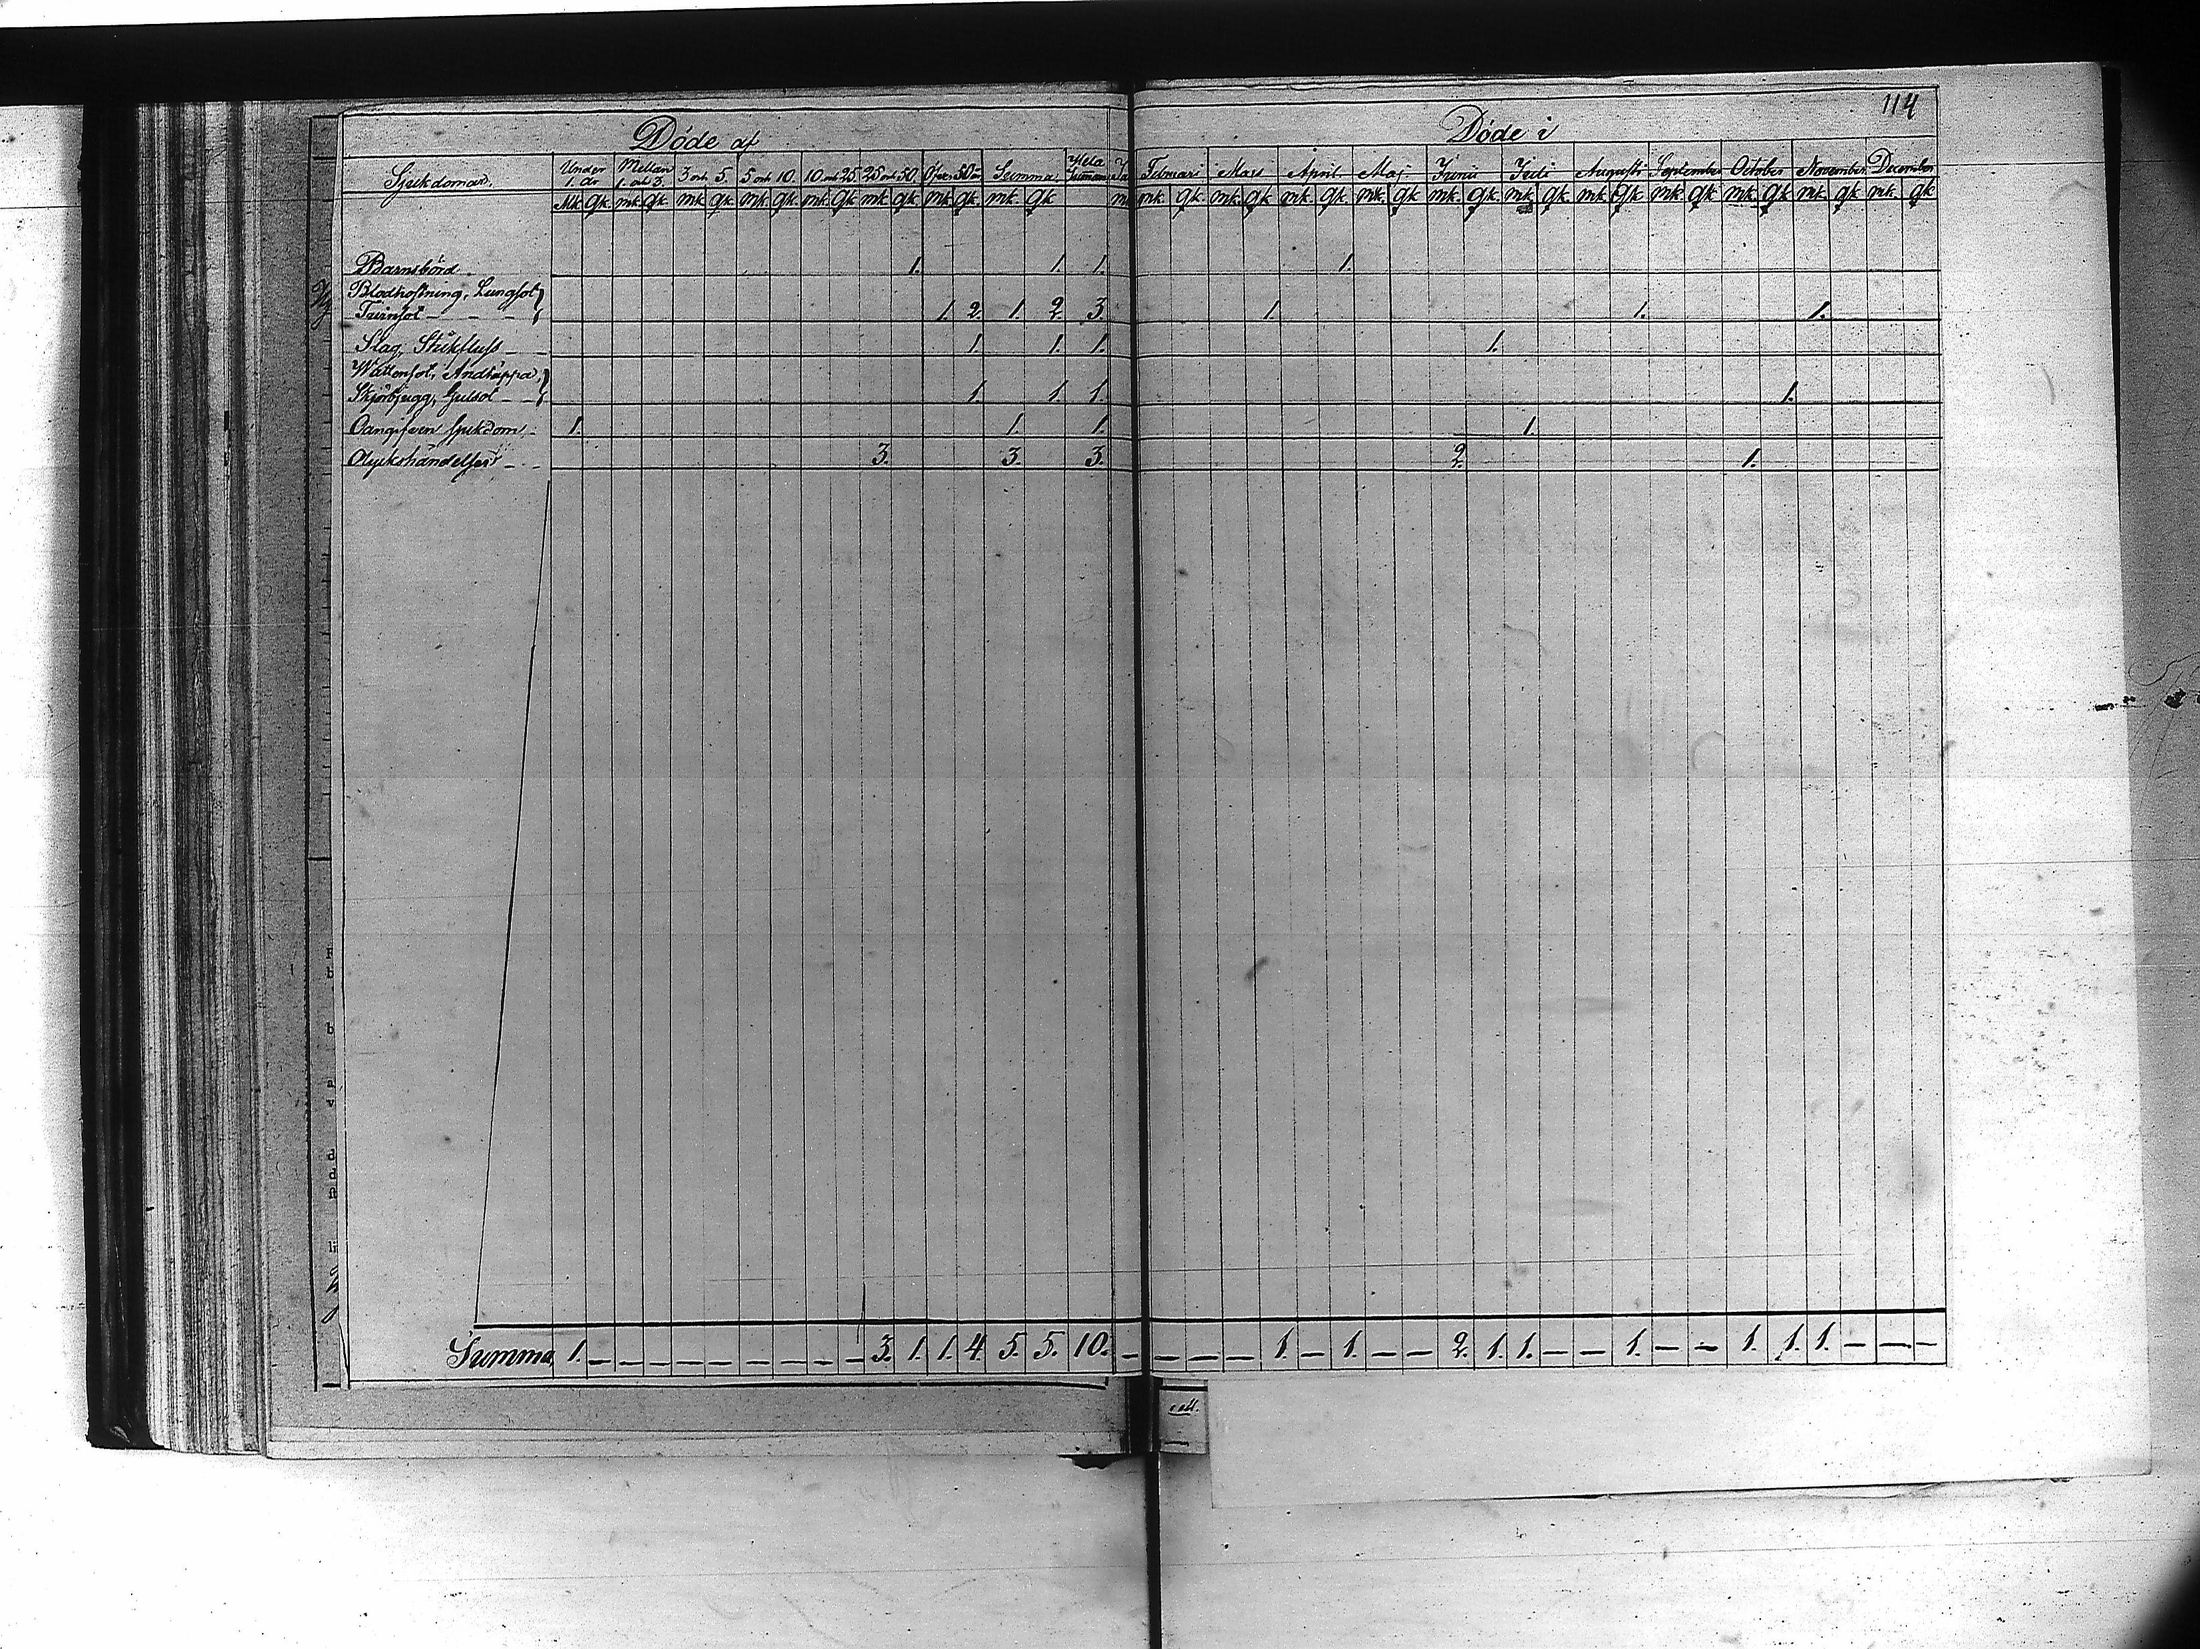 114
Döde af
Döde i
Sjukdomar. Under 1. år Mellan 1. och 3. 3 och 5. 5 och 10. 10 och 25 25 och 50. Öfver 50 år Summa. Hela Summan
Februari Mars April Maj Junii Julii Augusti September October November December
Mk. Qk. mk. Qk. mk. Qk. mk. Qk. mk. Qk. mk. Qk. mk. Qk. mk. Qk.
mk. Qk. mk. Qk. mk. Qk. mk. Qk. mk. Qk. mk. Qk. mk. Qk. mk. Qk. mk. Qk. mk. Qk. mk. Qk
Barnsbörd 1. 1. 1. 1.
Blodhostning, Lungsot
Tvinsot - - - - 1. 2. 1. 2. 3. 1. 1. 1.
Slag, Stickfluss - - 1. 1. 1. 1.
Wattensot, Andtäppa,
Skjörbjugg, Gulsot - - 1. 1. 1. 1.
Oangifven sjukdom - 1. 1. 1. 1.
Olyckshändelser - - 3. 3. 3. 2. 1.
Summa 1. - - - - - - - - - 3. 1. 1. 4. 5. 5. 10. - - - - 1. - 1. - - 2. 1. 1. - - 1. - - 1. 1. 1. - - -